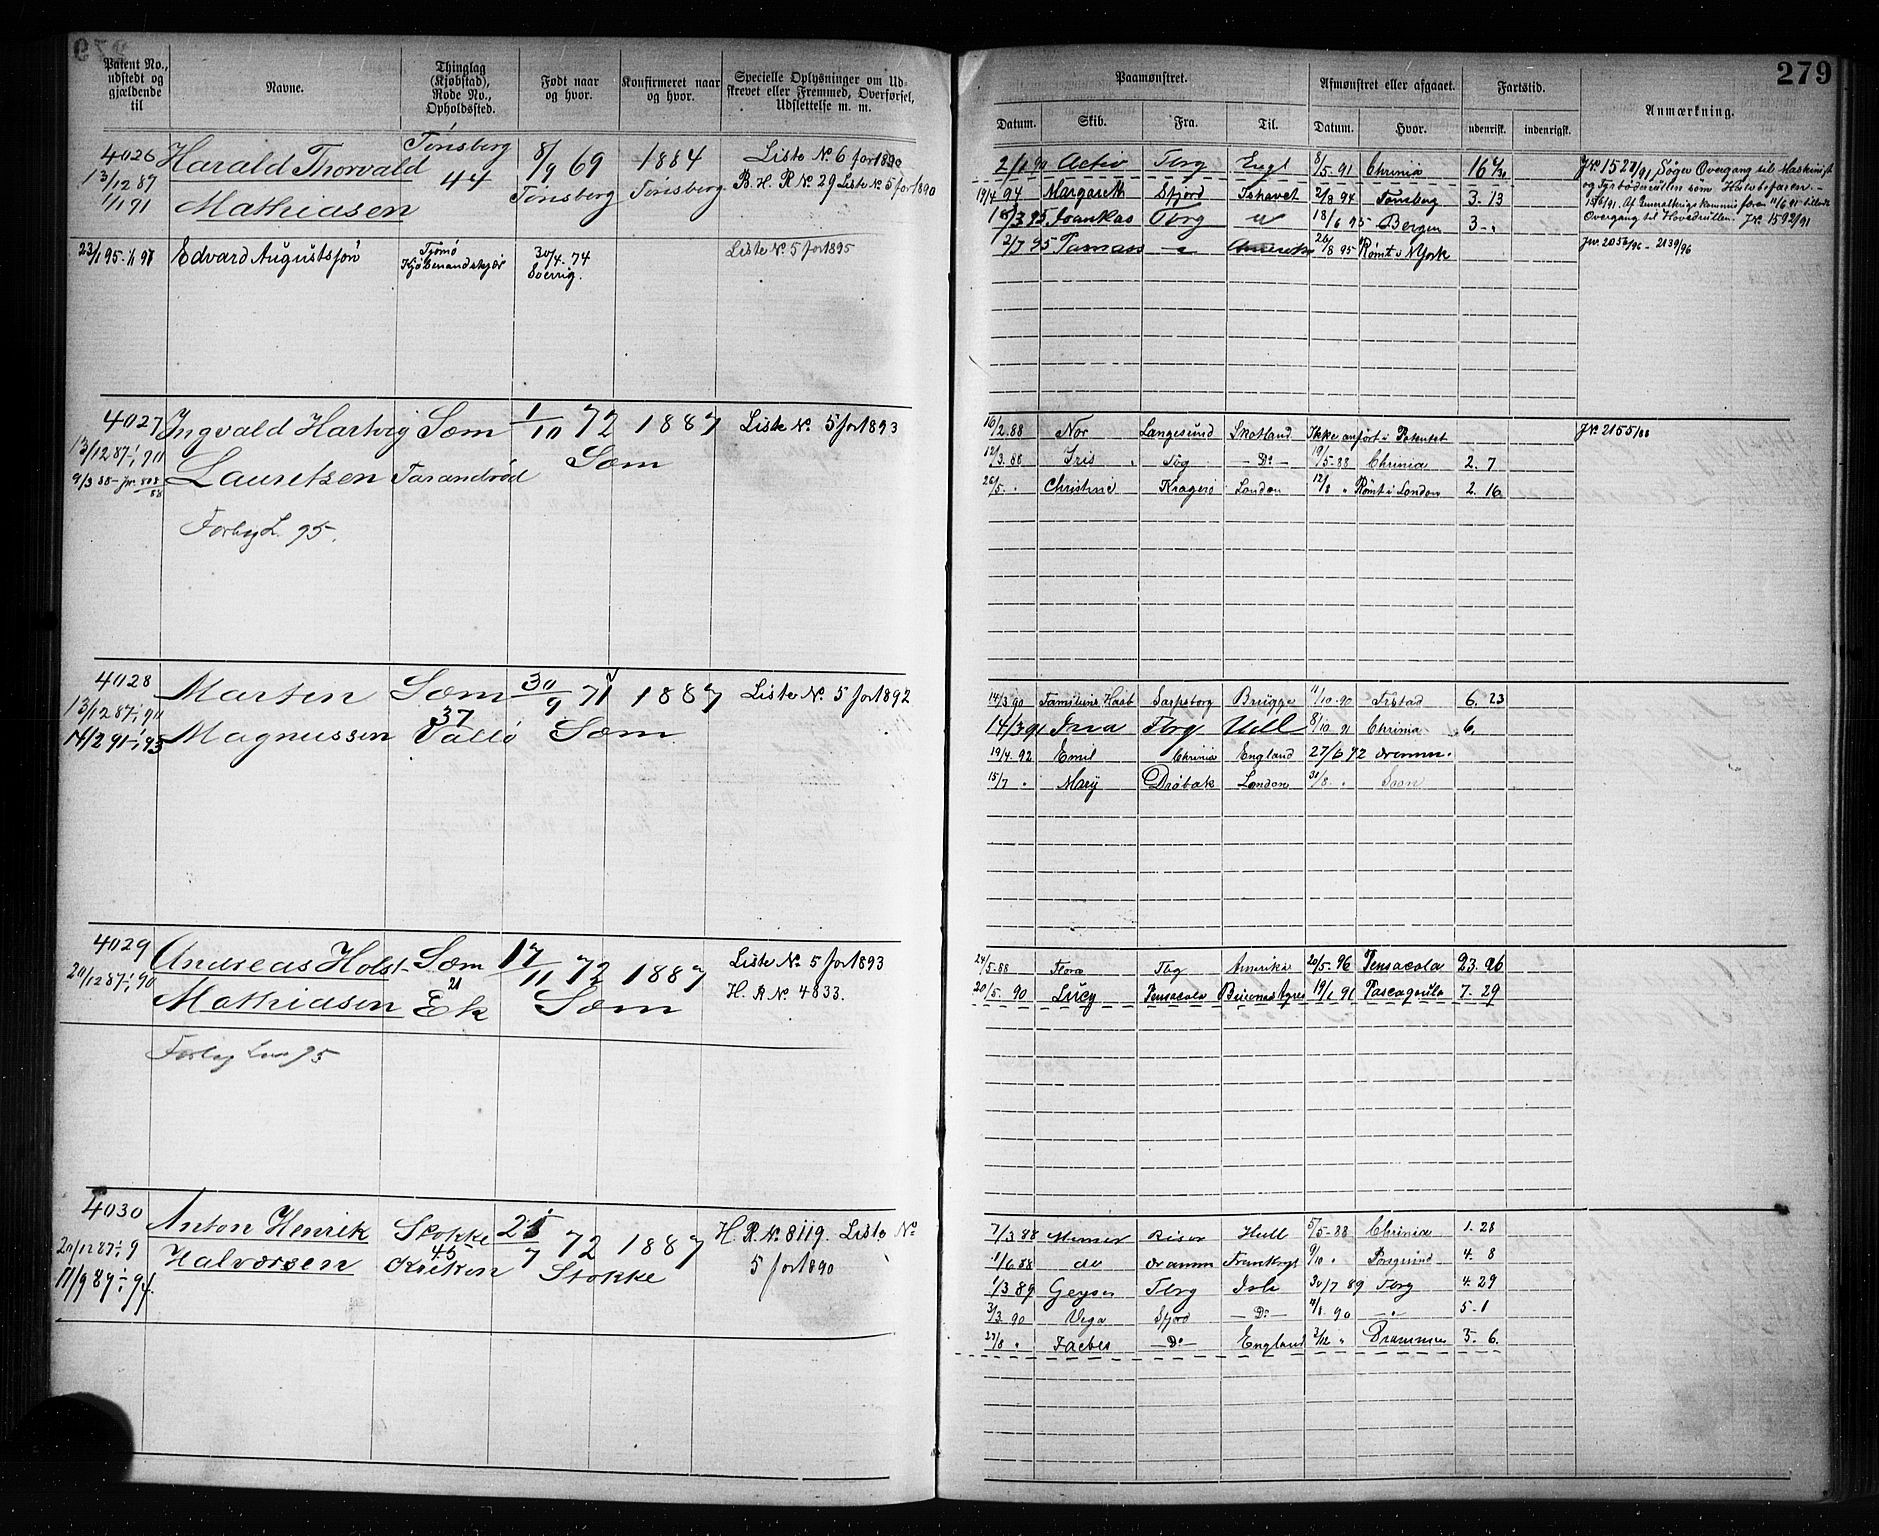 279
Patent No., udstedt og gjældende til
Navne.
Thinglag (Kjøbstad), Rode No., Opholdssted.
Født naar og hvor.
Konfirmeret naar og hvor.
Specielle Oplysninger om Udskrevet eller Fremmed, Overførsel, Udslettelse m. m.
Paamønstret.
Afmønstret eller afgaaet.
Fartstid.
Anmærkning.
Datum. Skib. Fra. Til. Datum. Hvor. udenrigsk. indenrigsk.
4026 Harald Thorvald Tønsberg 8/9 69 1884 Liste No 6 for 1890
13/12 87 44 Tønsberg Tønsberg B. H. R No. 29 Liste No 5 for 1890
1/1 91 Mathiasen
2/1 90 Activ Tbrg Engl 8/5 91 Chrinia 16
19/4 94 Margareth Sfjord Ishavet 2/9 94 Tønsberg 3. 13
3 95 Tbrg 18/6 95 Bergen 3
2/7 95 26/8 95 Rømt i N York
Søger Overgang til Maskinist
og Fyrbøderrullen som
Overgang til Hovedrullen. JNo 1592/91
Jnr. 2056/96 - 2139/96
23/1 95 - 1/1 98 Edvard Augustsøn Tjømø 30/4. 74 Liste No. 5 for 1895
4027 Ingvald Hartvig Sæm 1/10 72 1887 Liste No. 5 for 1893
13/12 87 - 1/1 90 Sæm
9/3 88 - jnr. 508/88 Lauretsen Tarandrød
Forbig L. 95.
16/2 88 Nor Langesund Skotland Ikke anført i Patentet JNo. 2155/88
12/3. 88 Iris Tbg - Do - 19/5 - 88 Chrinia 2. 7
26/5. " Christine Kragerø London 12/8 " Rømt i London 2. 16
4028 Marten Sæm 30/9 71 1887 Liste No. 5 for 1892
13/12 87 - 1/1 90 37
14/2 91 - 1/1 95 Magnussen Vallø Sæm
14/3 90 Familiens Haab Sarpsborg Brügge 11/10 - 90 Frstad 6. 23
14/3 91 Tbrg Hull 8/10 91 Chrinia 6.
19/4. 92 Emil Chrinia England 27/6 92 Dramm.
15/7 " Mary Drøbak London 30/8. "
4029 Andreas Holst Sæm 17/11 72 1887 Liste No. 5 for 1893
20/12 87 - 1/1 90 21 H. R No. 4833.
Mathiasen Ek Sæm
24/5. 88 Flora Tbg Amerika 20/5. 96 Pensacola 23. 26
20/5. 90 Lucy Pensacola Buenos Ayres 19/1 91 Pascagoula 7. 29
4030 Anton Henrik Stokke 25/7 72 1887 H. R. No. 8119. Liste No
20/12 87 - 1/1 9 45 5 for 1890
Halvorsen Stokke
11/9 89 - 1/1 94.
7/3 88 Risør Hull 5/5 - 88 Chrinia 1. 28
1/6. 88 do Dramm 9/10 " 4. 8
1/3 89 Geyser Tbrg 30/7 89 Tbrg 4. 29
3/3. 90 Vega Sfjord - Do - 4/8. 90 5 - 1
27/8 " - Do - England 2/12 " Drammen 3. 6.